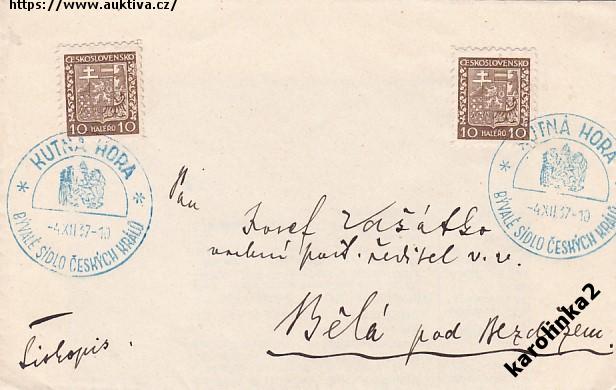 https://www.auktiva.cz/
ČESKOSLOVENSKO
10 HALÉŘŮ 10
ČESKOSLOVENSKO
10 HALÉŘŮ 10
* KUTNÁ HORA *
-4.XII 37-10
BÝVALÉ SÍDLO ČESKÝCH KRÁLŮ
* KUTNÁ HORA
-4.XII 37-10
BÝVALÉ SÍDLO ČESKÝCH KRÁLŮ
Pan
Josef Zašátko
vrchní pošt. ředitel v. v.
Bělá pod Bezdězem.
Tiskopis.
karolinka2